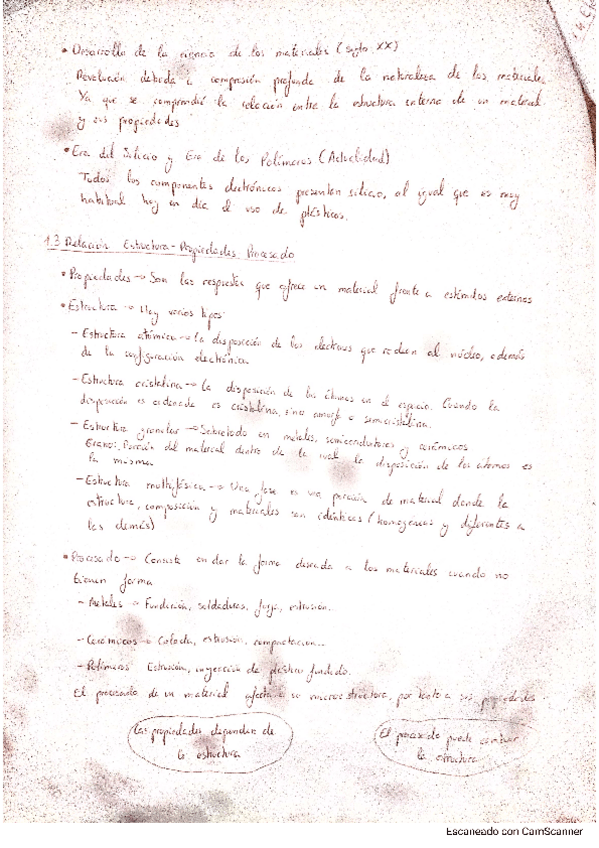 • Desarrollo de la ciencia de los materiales (siglo XX)
Revolución debida a compresión profunda de la naturaleza de los materiales.
Ya que se comprendió la relación entre la estructura interna de un material
y sus propiedades
• Era del Silicio y Era de los Polímeros (Actualidad)
Todos los componentes electrónicos presentan silicio, al igual que es muy
habitual hoy en día el uso de plásticos.
1.3 Relación Estructura-Propiedades-Procesado
• Propiedades → Son las respuestas que ofrece un material frente a estímulos externos
• Estructura → Hay varios tipos:
- Estructura atómica → la disposición de los electrones que rodean al núcleo, además
de la configuración electrónica.
- Estructura cristalina → La disposición de los átomos en el espacio. Cuando la
disposición es ordenada es cristalina, sino amorfa o semicristalina.
- Estructura granular → Sobretodo en metales, semiconductores y cerámicos
Grano: Porción del material dentro de la cual la disposición de los átomos es
la misma.
- Estructura multifásica → Una fase es una porción de material donde la
estructura, composición y materiales son idénticas (homogéneas y diferentes a
las demás)
• Procesado → Consiste en dar la forma deseada a los materiales cuando no
tienen forma
- Metales → Fundición, soldaduras, forja, extrusión...
- Cerámicos → Colada, extrusión, compactación...
- Polímeros Extrusión, inyección de plástico fundido.
El procesado de un material afecta a su microestructura, por tanto a sus propiedades.
Las propiedades dependen de
la estructura
El procesado puede cambiar
la estructura
Escaneado con CamScanner